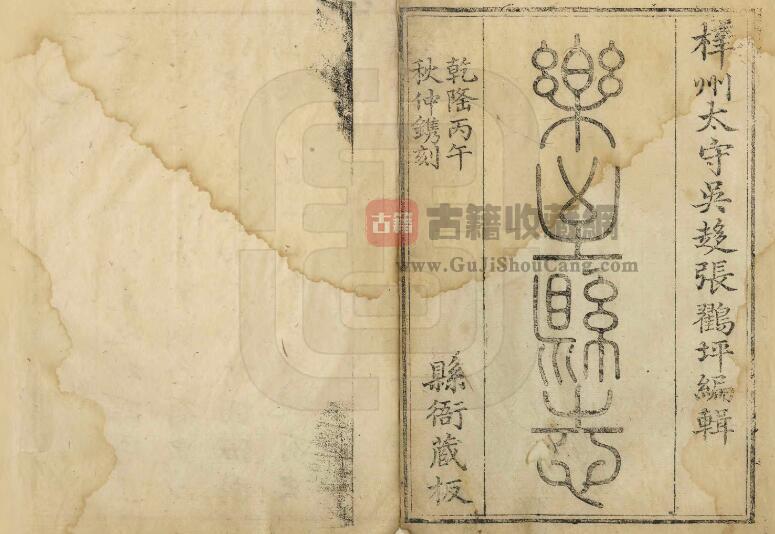 梓州太守吳趍張鸐坪編輯
樂至縣志
乾隆丙午
秋仲鐫刻
縣衙藏板
古籍
古籍收藏網
www.GuJiShouCang.com